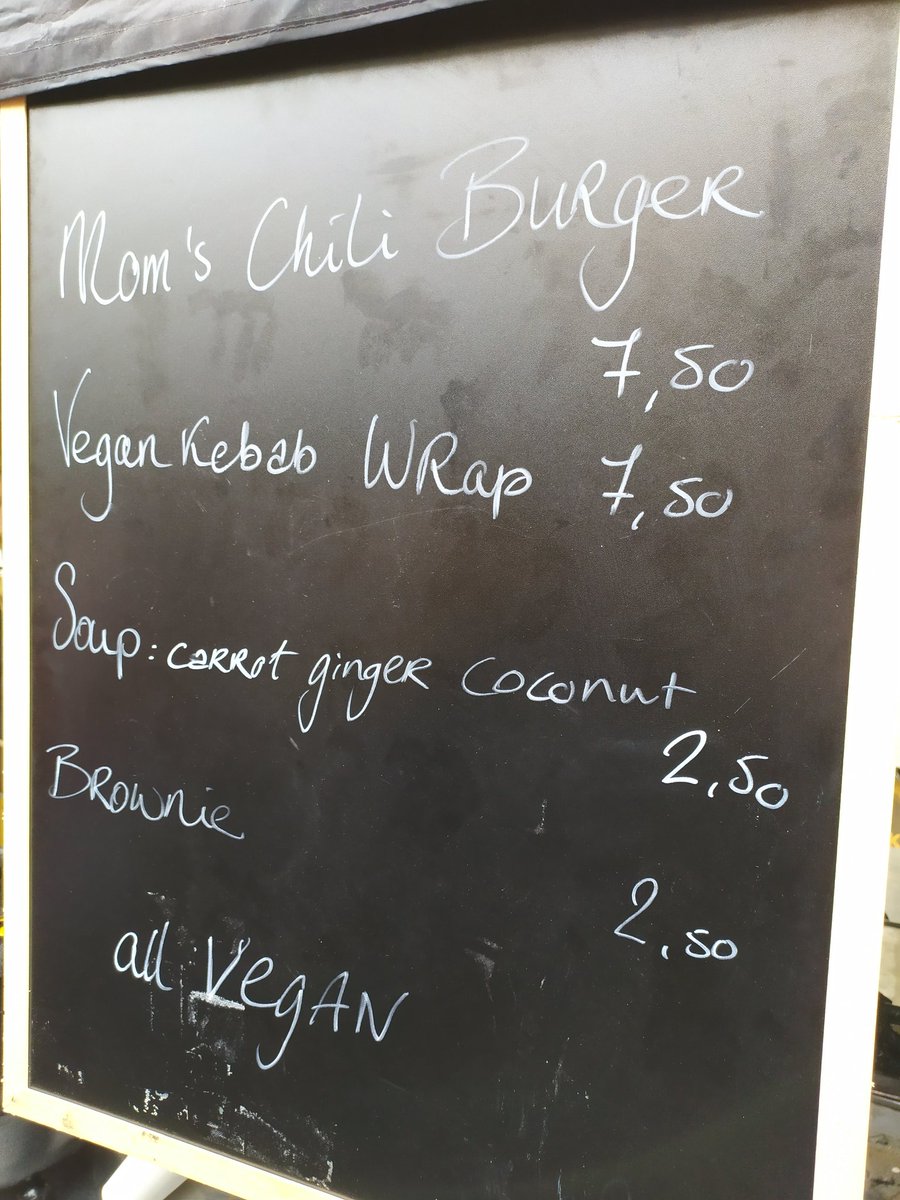 Mom's Chili Burger
7,50
Vegan Kebab Wrap 7,50
Soup: carrot ginger coconut
2,50
Brownie
2,50
all Vegan